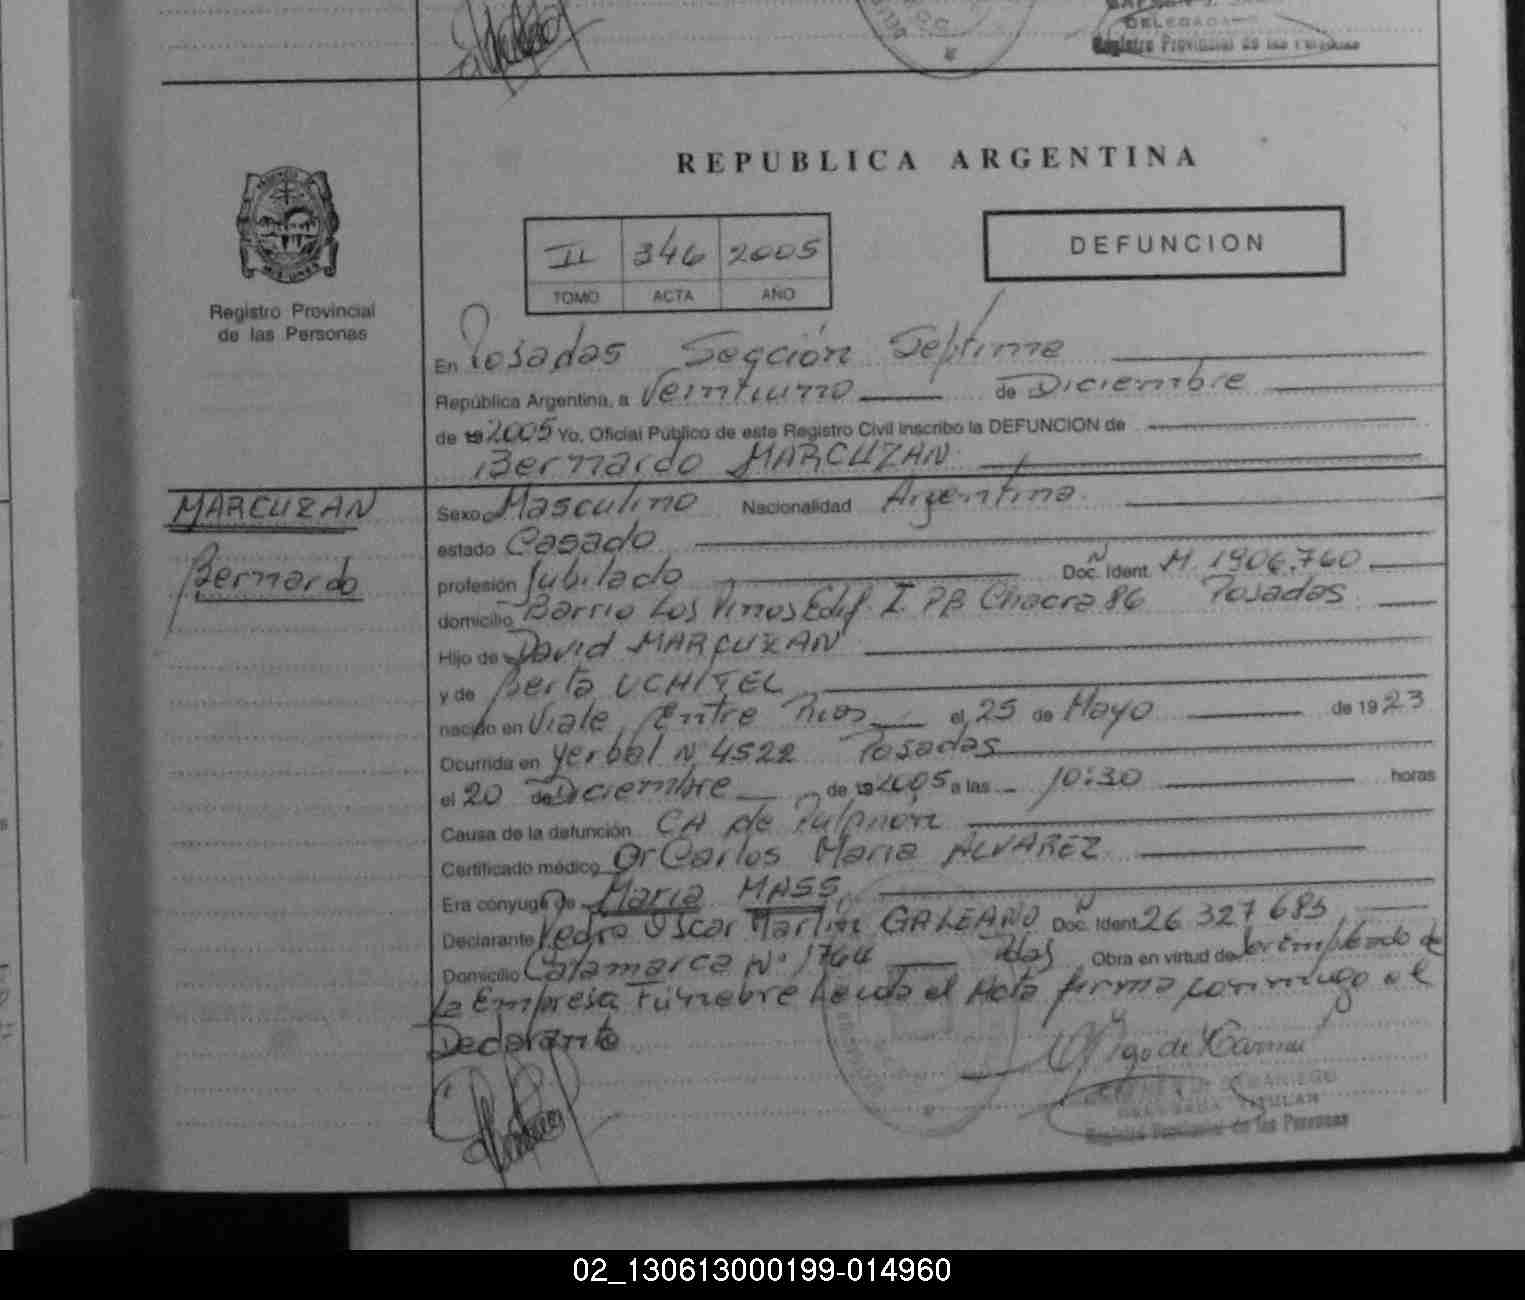 DELEGADA
Registro Provincial de las Personas
REPUBLICA ARGENTINA
II 346 2005
TOMO ACTA AÑO
DEFUNCION
Registro Provincial
de las Personas
En Posadas Sección Septima
República Argentina, a Veintiuno de Diciembre
de 19 2005 Yo, Oficial Público de este Registro Civil inscribo la DEFUNCION de
Bernardo MARCUZAN
MARCUZAN
Bernardo
Sexo Masculino Nacionalidad Argentina
estado Casado
profesión Jubilado Doc. Ident. Nº M. 1906.760
domicilio Barrio Los Pinos Edif. I PB Chacra 86 Posadas
Hijo de David MARCUZAN
y de Berta UCHITEL
nacido en Viale, Entre Rios el 25 de Mayo de 1923
Ocurrida en Yerbal N 4522 Posadas
el 20 de Diciembre de 19 2005 a las 10:30 horas
Causa de la defunción CA de Pulmón
Certificado médico Dr Carlos Maria ALVAREZ
Era conyuge de Maria MASS
Declarante Pedro Oscar Martin GALEANO Doc. Ident. N 26 327 685
Domicilio Catamarca Nº 1764 Pdas Obra en virtud de ser empleado de
la Empresa Fúnebre Leida el Acta firma conmigo el
Declarante
DELEGADA TITULAR
Registro Provincial de las Personas
02_130613000199-014960